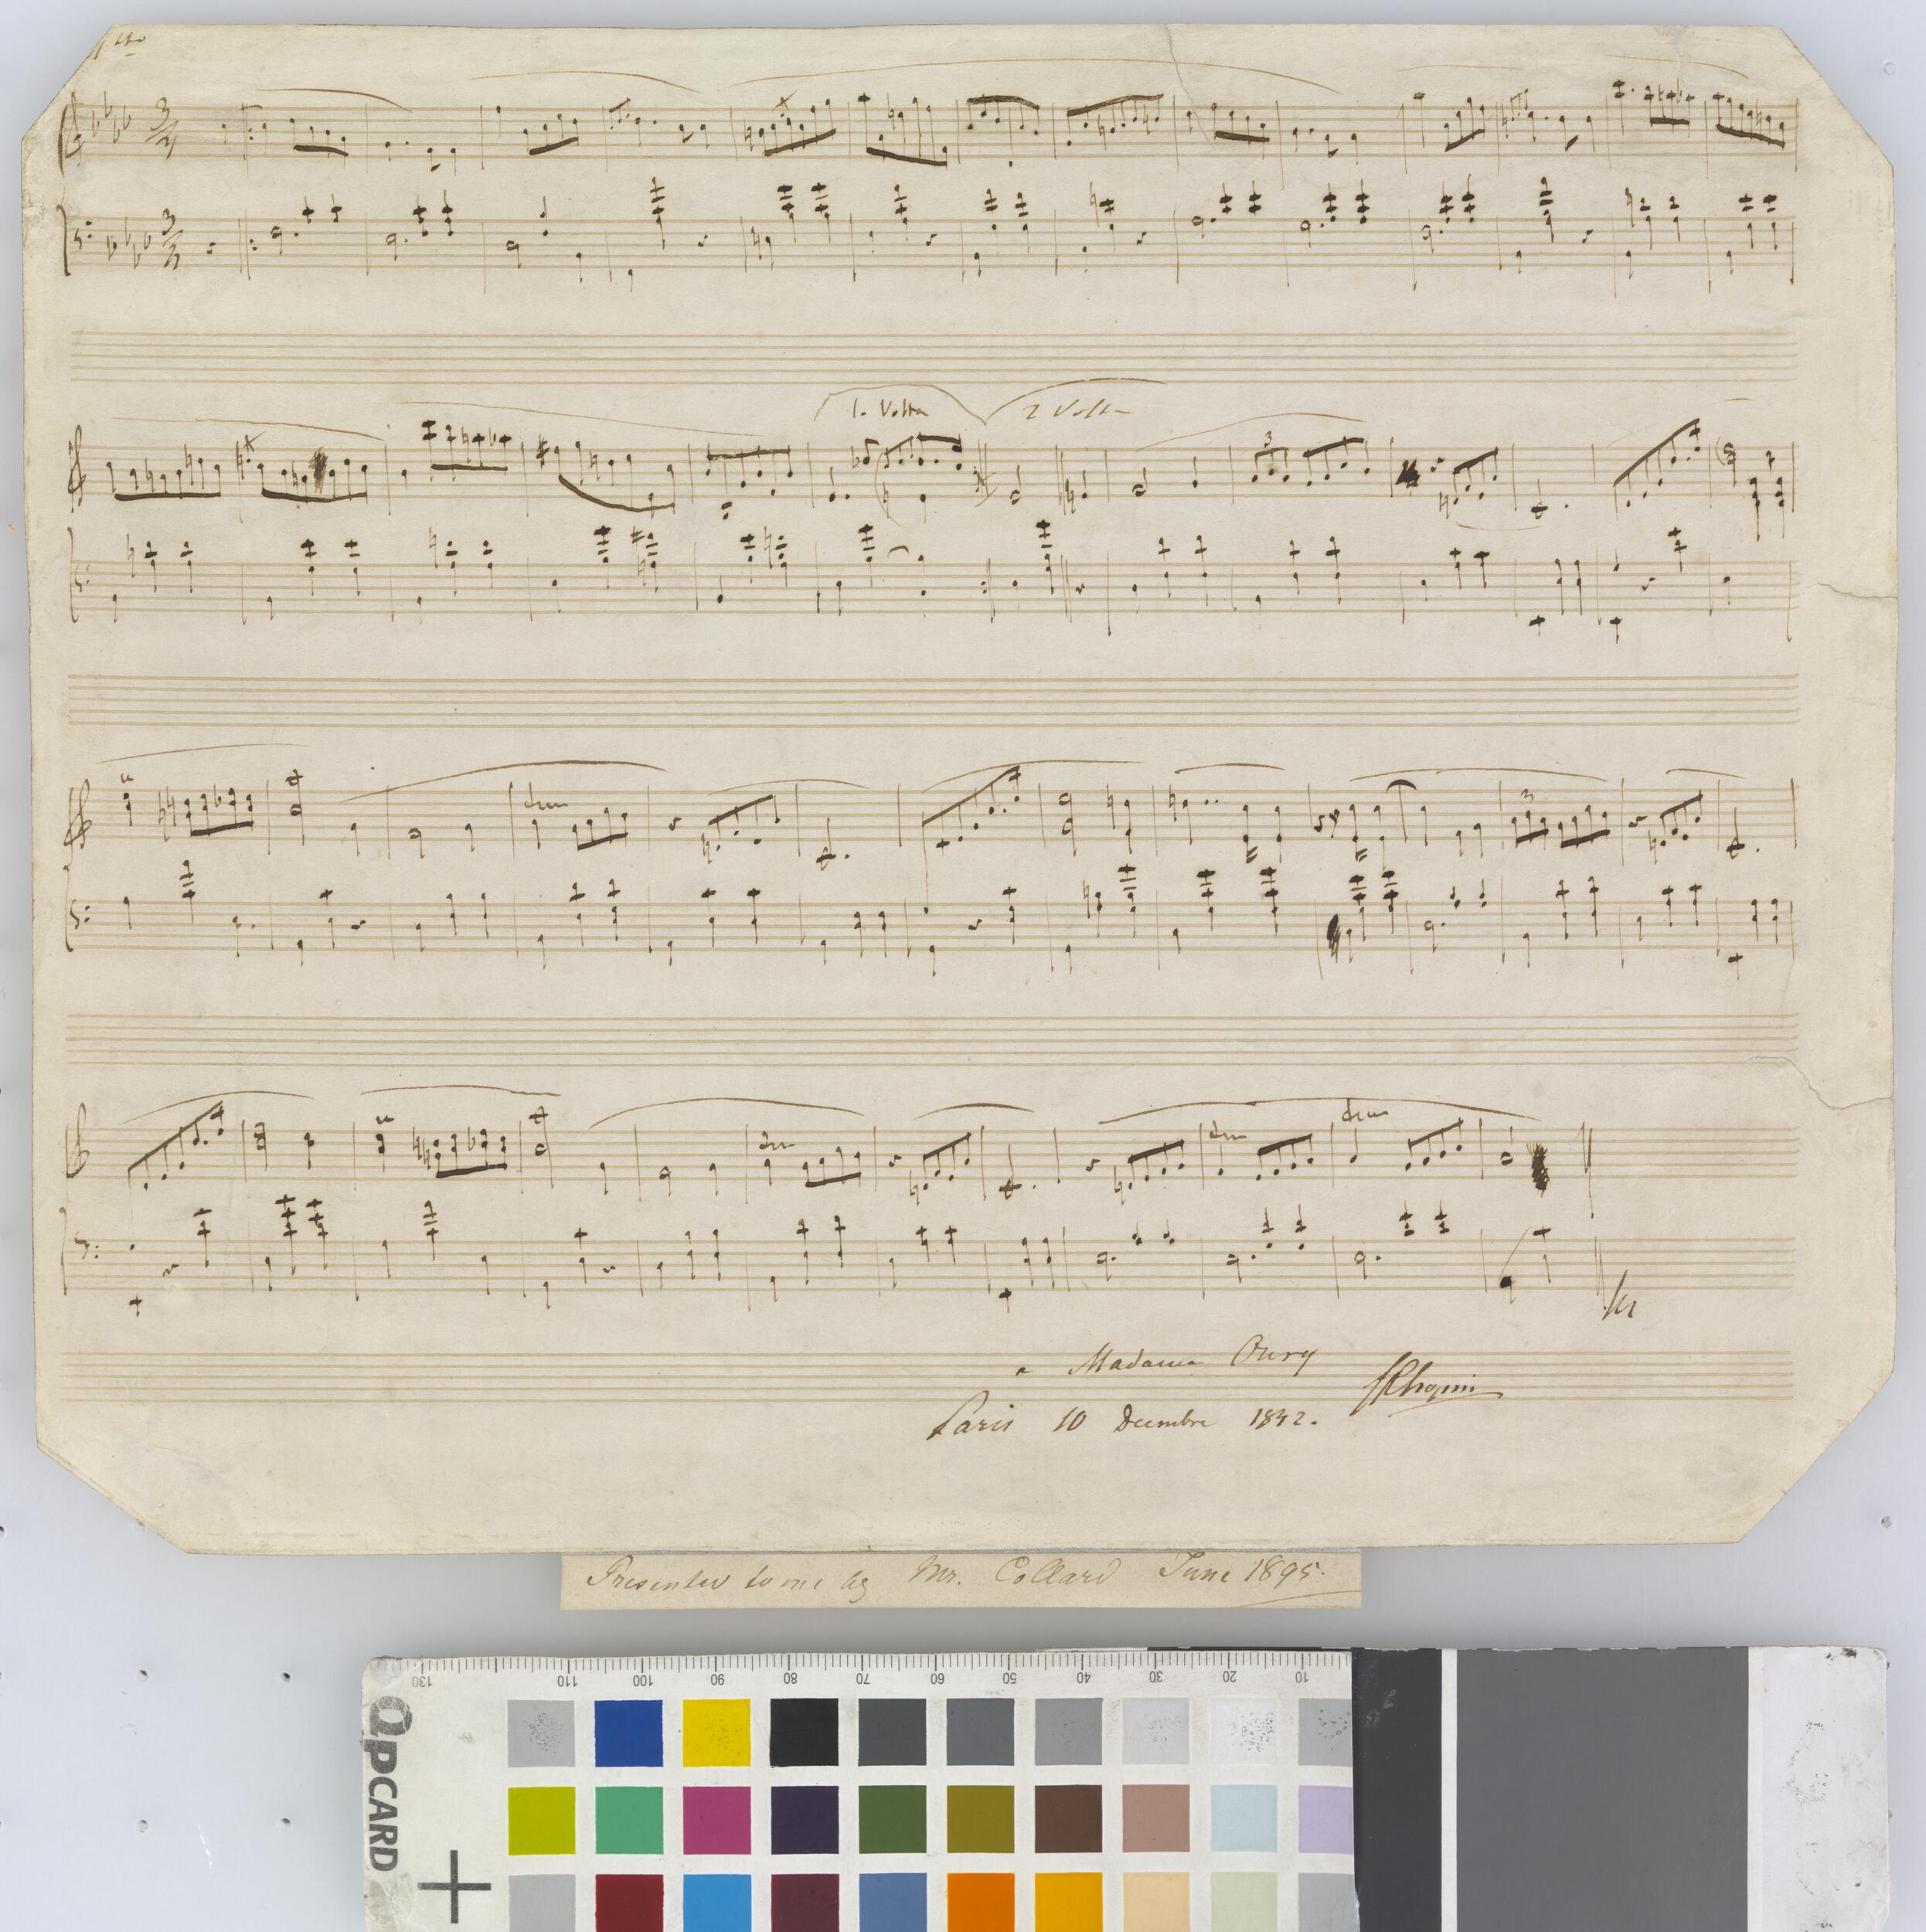 All<sup>tto</sup>
3/4
3/4
1. Volta 2 Volta
3
3
a Madame Oury
FFChopin
Paris 10 Decembre 1842.
Presented to me by Mr. Collard June 1895.
130 110 100 90 80 70 60 50 40 30 20 10
QPCARD